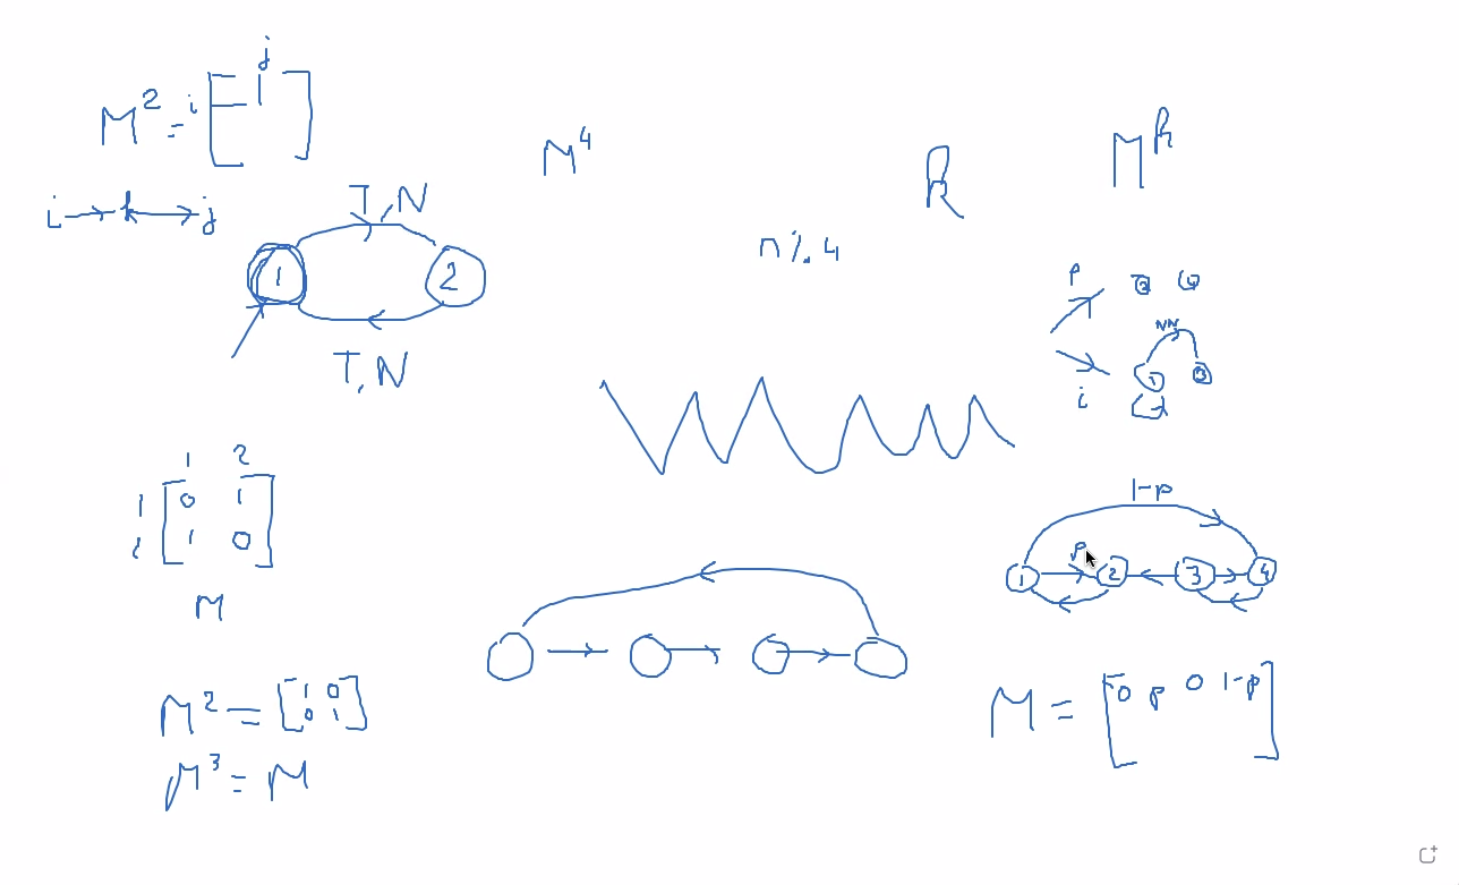 j
M² = i [ ]
i → k → j
T, N
1 2
T, N
1 2
1 [ 0 1 ]
2 [ 1 0 ]
M
M² = [ 1 0
0 1 ]
M³ = M
M⁴
n % 4
R
M^k
P
2 4
NN
1 3
i
2
1-p
p
1 2 3 4
M = [ 0 p 0 1-p ]